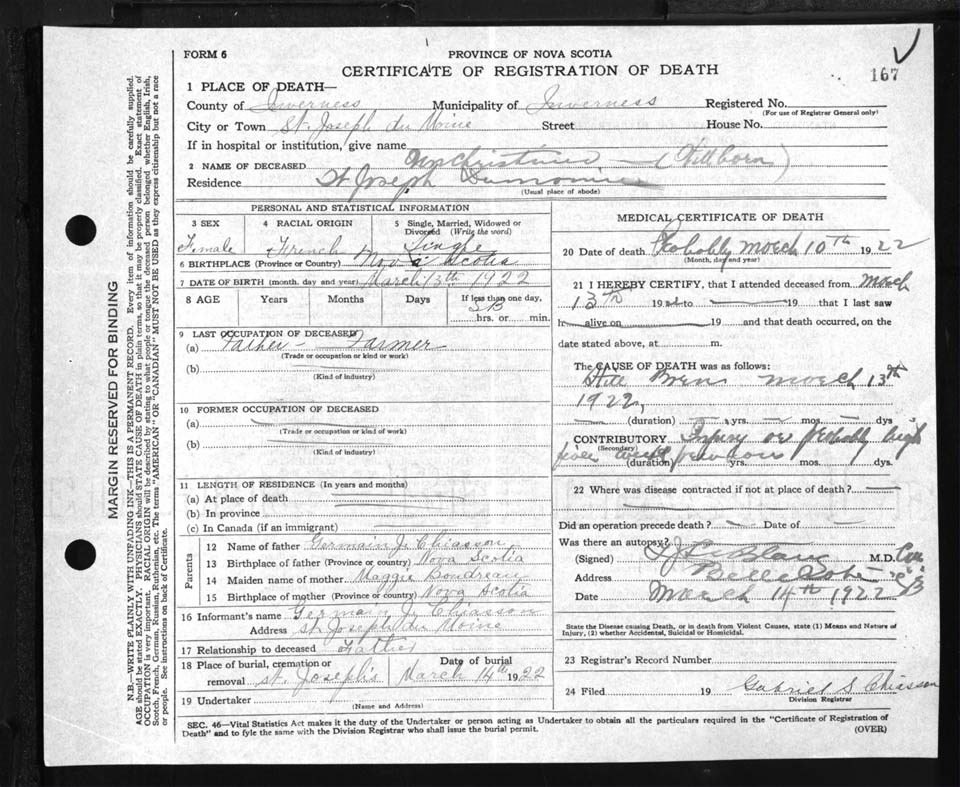 FORM 6
PROVINCE OF NOVA SCOTIA
CERTIFICATE OF REGISTRATION OF DEATH
167
1 PLACE OF DEATH—
County of Inverness Municipality of Inverness Registered No.
(For use of Registrar General only)
City or Town St. Joseph du Moine Street House No.
If in hospital or institution, give name
2 NAME OF DECEASED (Stillborn)
Residence St Joseph
(Usual place of abode)
PERSONAL AND STATISTICAL INFORMATION
3 SEX 4 RACIAL ORIGIN 5 Single, Married, Widowed or Divorced (Write the word)
Female French Single
6 BIRTHPLACE (Province or Country) Nova Scotia
7 DATE OF BIRTH (month, day and year) March 13th 1922
8 AGE Years Months Days If less than one day,
SB
hrs. or min.
9 LAST OCCUPATION OF DECEASED
(a) Father - Farmer
(Trade or occupation or kind or work)
(b)
(Kind of industry)
10 FORMER OCCUPATION OF DECEASED
(a)
(Trade or occupation or kind of work)
(b)
(Kind of industry)
11 LENGTH OF RESIDENCE (In years and months)
(a) At place of death
(b) In province
(c) In Canada (if an immigrant)
Parents
12 Name of father Germain J. Chiasson
13 Birthplace of father (Province or country) Nova Scotia
14 Maiden name of mother Maggie Boudreau
15 Birthplace of mother (Province or country) Nova Scotia
16 Informant's name Germain J. Chiasson
Address St Joseph du Moine
17 Relationship to deceased Father
18 Place of burial, cremation or removal St. Joseph's Date of burial March 14th 1922
19 Undertaker
(Name and Address)
MEDICAL CERTIFICATE OF DEATH
20 Date of death Probably March 10th 1922
(Month, day and year)
21 I HEREBY CERTIFY, that I attended deceased from March
13th 19 to 19 that I last saw
h alive on 19 and that death occurred, on the
date stated above, at m.
The CAUSE OF DEATH was as follows:
Still Born March 13th
1922,
(duration) yrs. mos. dys
CONTRIBUTORY Injury or probably high
(Secondary)
fever previous
(duration) yrs. mos. dys.
22 Where was disease contracted if not at place of death?
Did an operation precede death? Date of
Was there an autopsy?
(Signed) LeBlanc M.D.
Address Belle Cote
Date March 14th 1922
State the Disease causing Death, or in death from Violent Causes, state (1) Means and Nature of Injury, (2) whether Accidental, Suicidal or Homicidal.
23 Registrar's Record Number
24 Filed 19 Gabriel S Chiasson
Division Registrar
SEC. 46—Vital Statistics Act makes it the duty of the Undertaker or person acting as Undertaker to obtain all the particulars required in the "Certificate of Registration of
Death" and to fyle the same with the Division Registrar who shall issue the burial permit.
(OVER)
MARGIN RESERVED FOR BINDING
N.B.—WRITE PLAINLY WITH UNFADING INK.—THIS IS A PERMANENT RECORD. Every item of information should be carefully supplied.
AGE should be stated EXACTLY. PHYSICIANS should STATE CAUSE OF DEATH in plain terms, so that it may be properly classified. Exact statement of
OCCUPATION is very important. RACIAL ORIGIN will be described by stating to what people or tongue the deceased person belonged whether English, Irish,
Scotch, French, German, Russian, Ruthenian, etc. The terms "AMERICAN" OR "CANADIAN" MUST NOT BE USED as they express citizenship but not a race
or people. See instructions on back of Certificate.